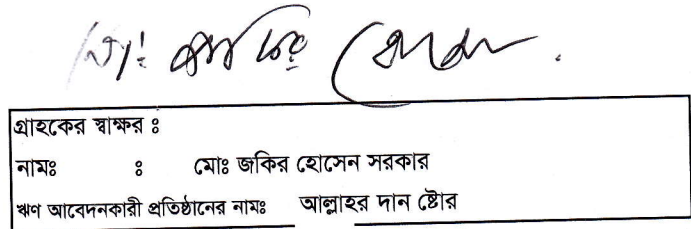 মোঃ জাকির হোসেন
গ্রাহকের স্বাক্ষর ঃ
নামঃ ঃ মোঃ জকির হোসেন সরকার
ঋণ আবেদনকারী প্রতিষ্ঠানের নামঃ আল্লাহর দান ষ্টোর